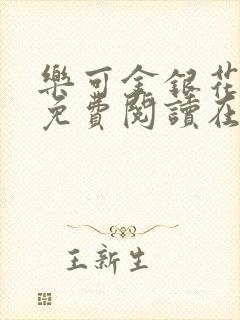 樂可金銀花
免費閱讀在
王新生